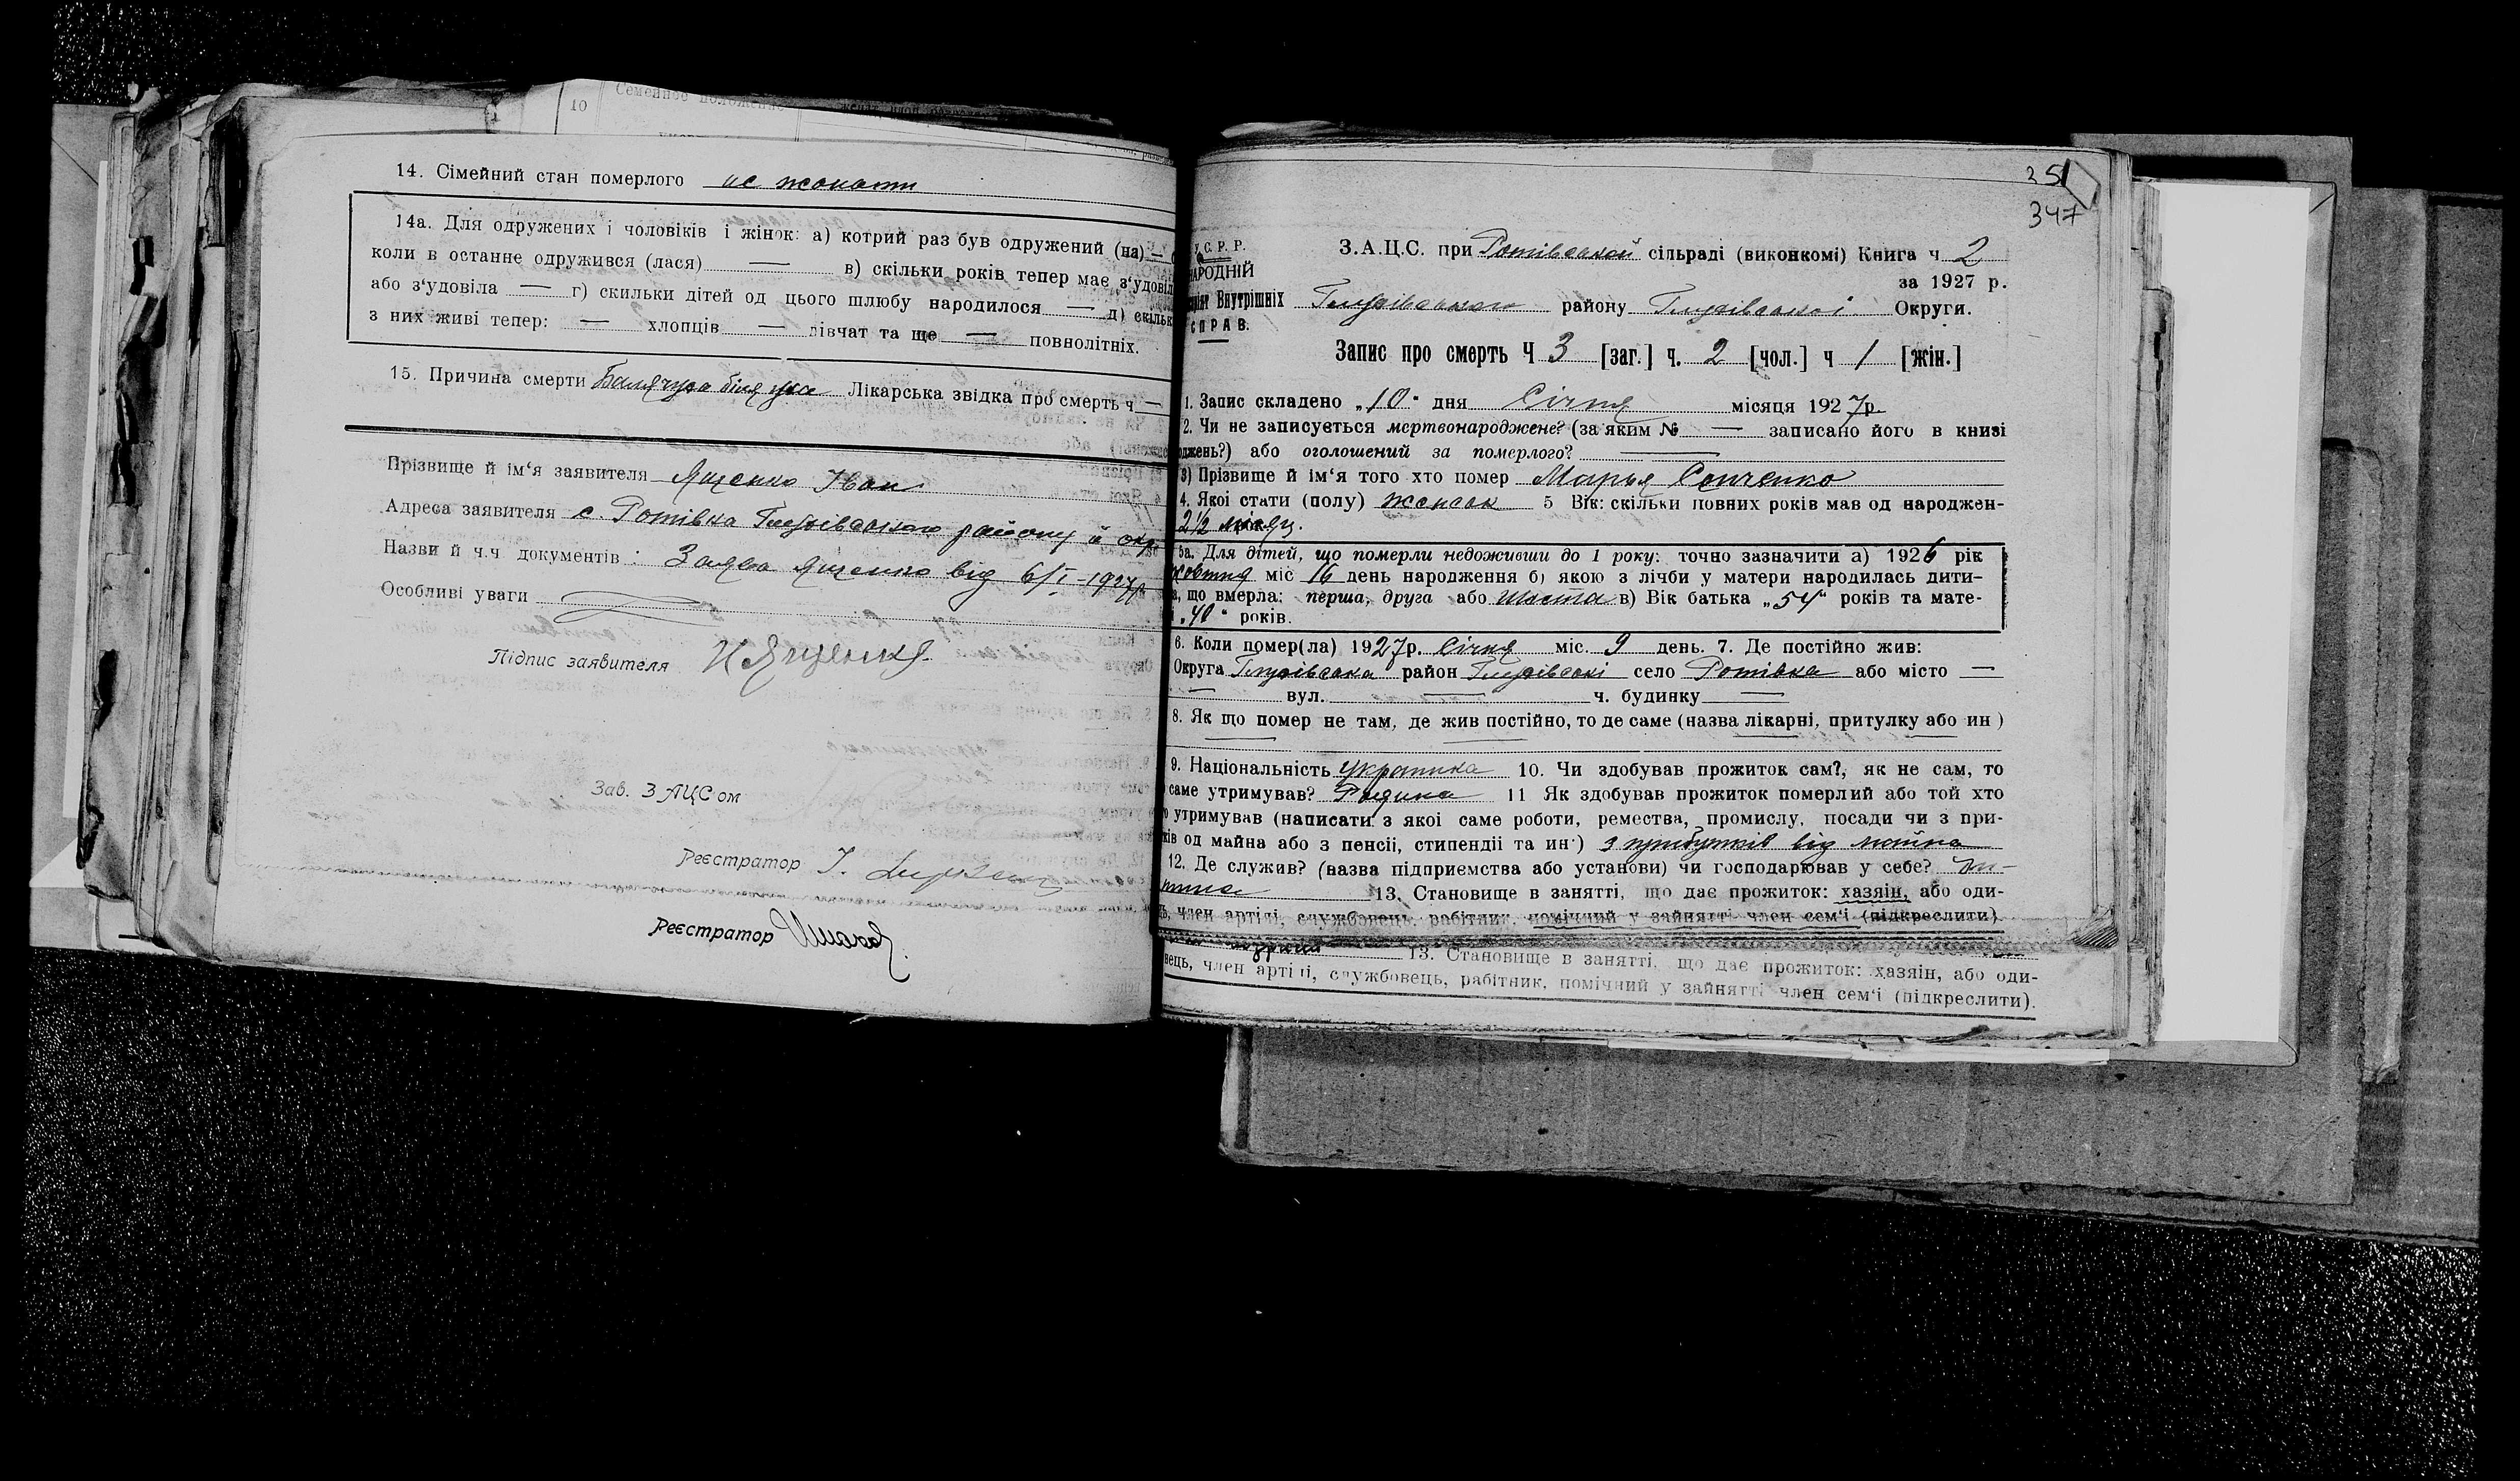 10 Семейное положение
14. Сімейний стан померлого не жонати
14а. Для одружених і чоловіків і жінок: а) котрий раз був одружений (на) —
коли в останне одружився (лася) — в) скільки років тепер має з‘удовіл
або з‘удовіла — г) скильки дітей од цього шлюбу народилося — д) скільк
з них живі тепер: — хлопців — дівчат та ще — повнолітніх.
15. Причина смерти біля Лікарська звідка про смерть ч —
Прізвище й ім‘я заявителя Ященко Іван
Адреса заявителя с. Ротівка Глухівського району й окр.
Назви й ч.ч документів: Заява Ященко від 6/I-1927р
Особливі уваги
Підпис заявителя И Ященко.
Зав. ЗАЦСом
Реєстратор І.
Реєстратор
251
347
У.С.Р.Р.
НАРОДНІЙ
Внутрішніх
СПРАВ.
З.А.Ц.С. при Ротівської сільраді (виконкомі) Книга ч 2
за 1927 р.
Глухівського району Глухівської Округи.
Запис про смерть Ч 3 [заг.] ч. 2 [чол.] ч 1 [жін.]
1. Запис складено „10“ дня Січня місяця 1927р.
2. Чи не записується мертвонароджене? (за яким № — записано його в книзі
оджень?) або оголошений за померлого? —
3) Прізвище й ім‘я того хто помер Марья Сенченко
4. Якої стати (полу) женськ 5 Вік: скільки повних років мав од народжен-
2½ місяц.
5а. Для дітей, що померли недоживши до 1 року: точно зазначити а) 1926 рік
жовтня міс 16 день народження б) якою з лічби у матери народилась дити-
а, що вмерла: перша, друга або шоста в) Вік батька „54“ років та мате-
„40“ років.
6. Коли помер(ла) 1927р. Січня міс. 9 день. 7. Де постійно жив:
Округа Глухівська район Глухівські село Ротівка або місто —
— вул. — ч. будинку —
8. Як що помер не там, де жив постійно, то де саме (назва лікарні, притулку або ин)
9. Національність українка 10. Чи здобував прожиток сам?, як не сам, то
саме утримував? Родина 11 Як здобував прожиток померлий або той хто
о утримував (написати з якоі саме роботи, ремества, промислу, посади чи з при-
ків од майна або з пенсіі, стипендіі та ин·) з прибутків від майна
12. Де служив? (назва підприемства або установи) чи господарював у себе? ди-
тина 13. Становище в занятті, що дає прожиток: хазяін, або оди-
ць, член артілі, службовець, рабітник, помічний у зайнятті член сем‘і (підкреслити)
13. Становище в занятті, що дає прожиток: хазяін, або оди-
вець, член артілі, службовець, рабітник, помічний у зайнятті член сем‘і (підкреслити).